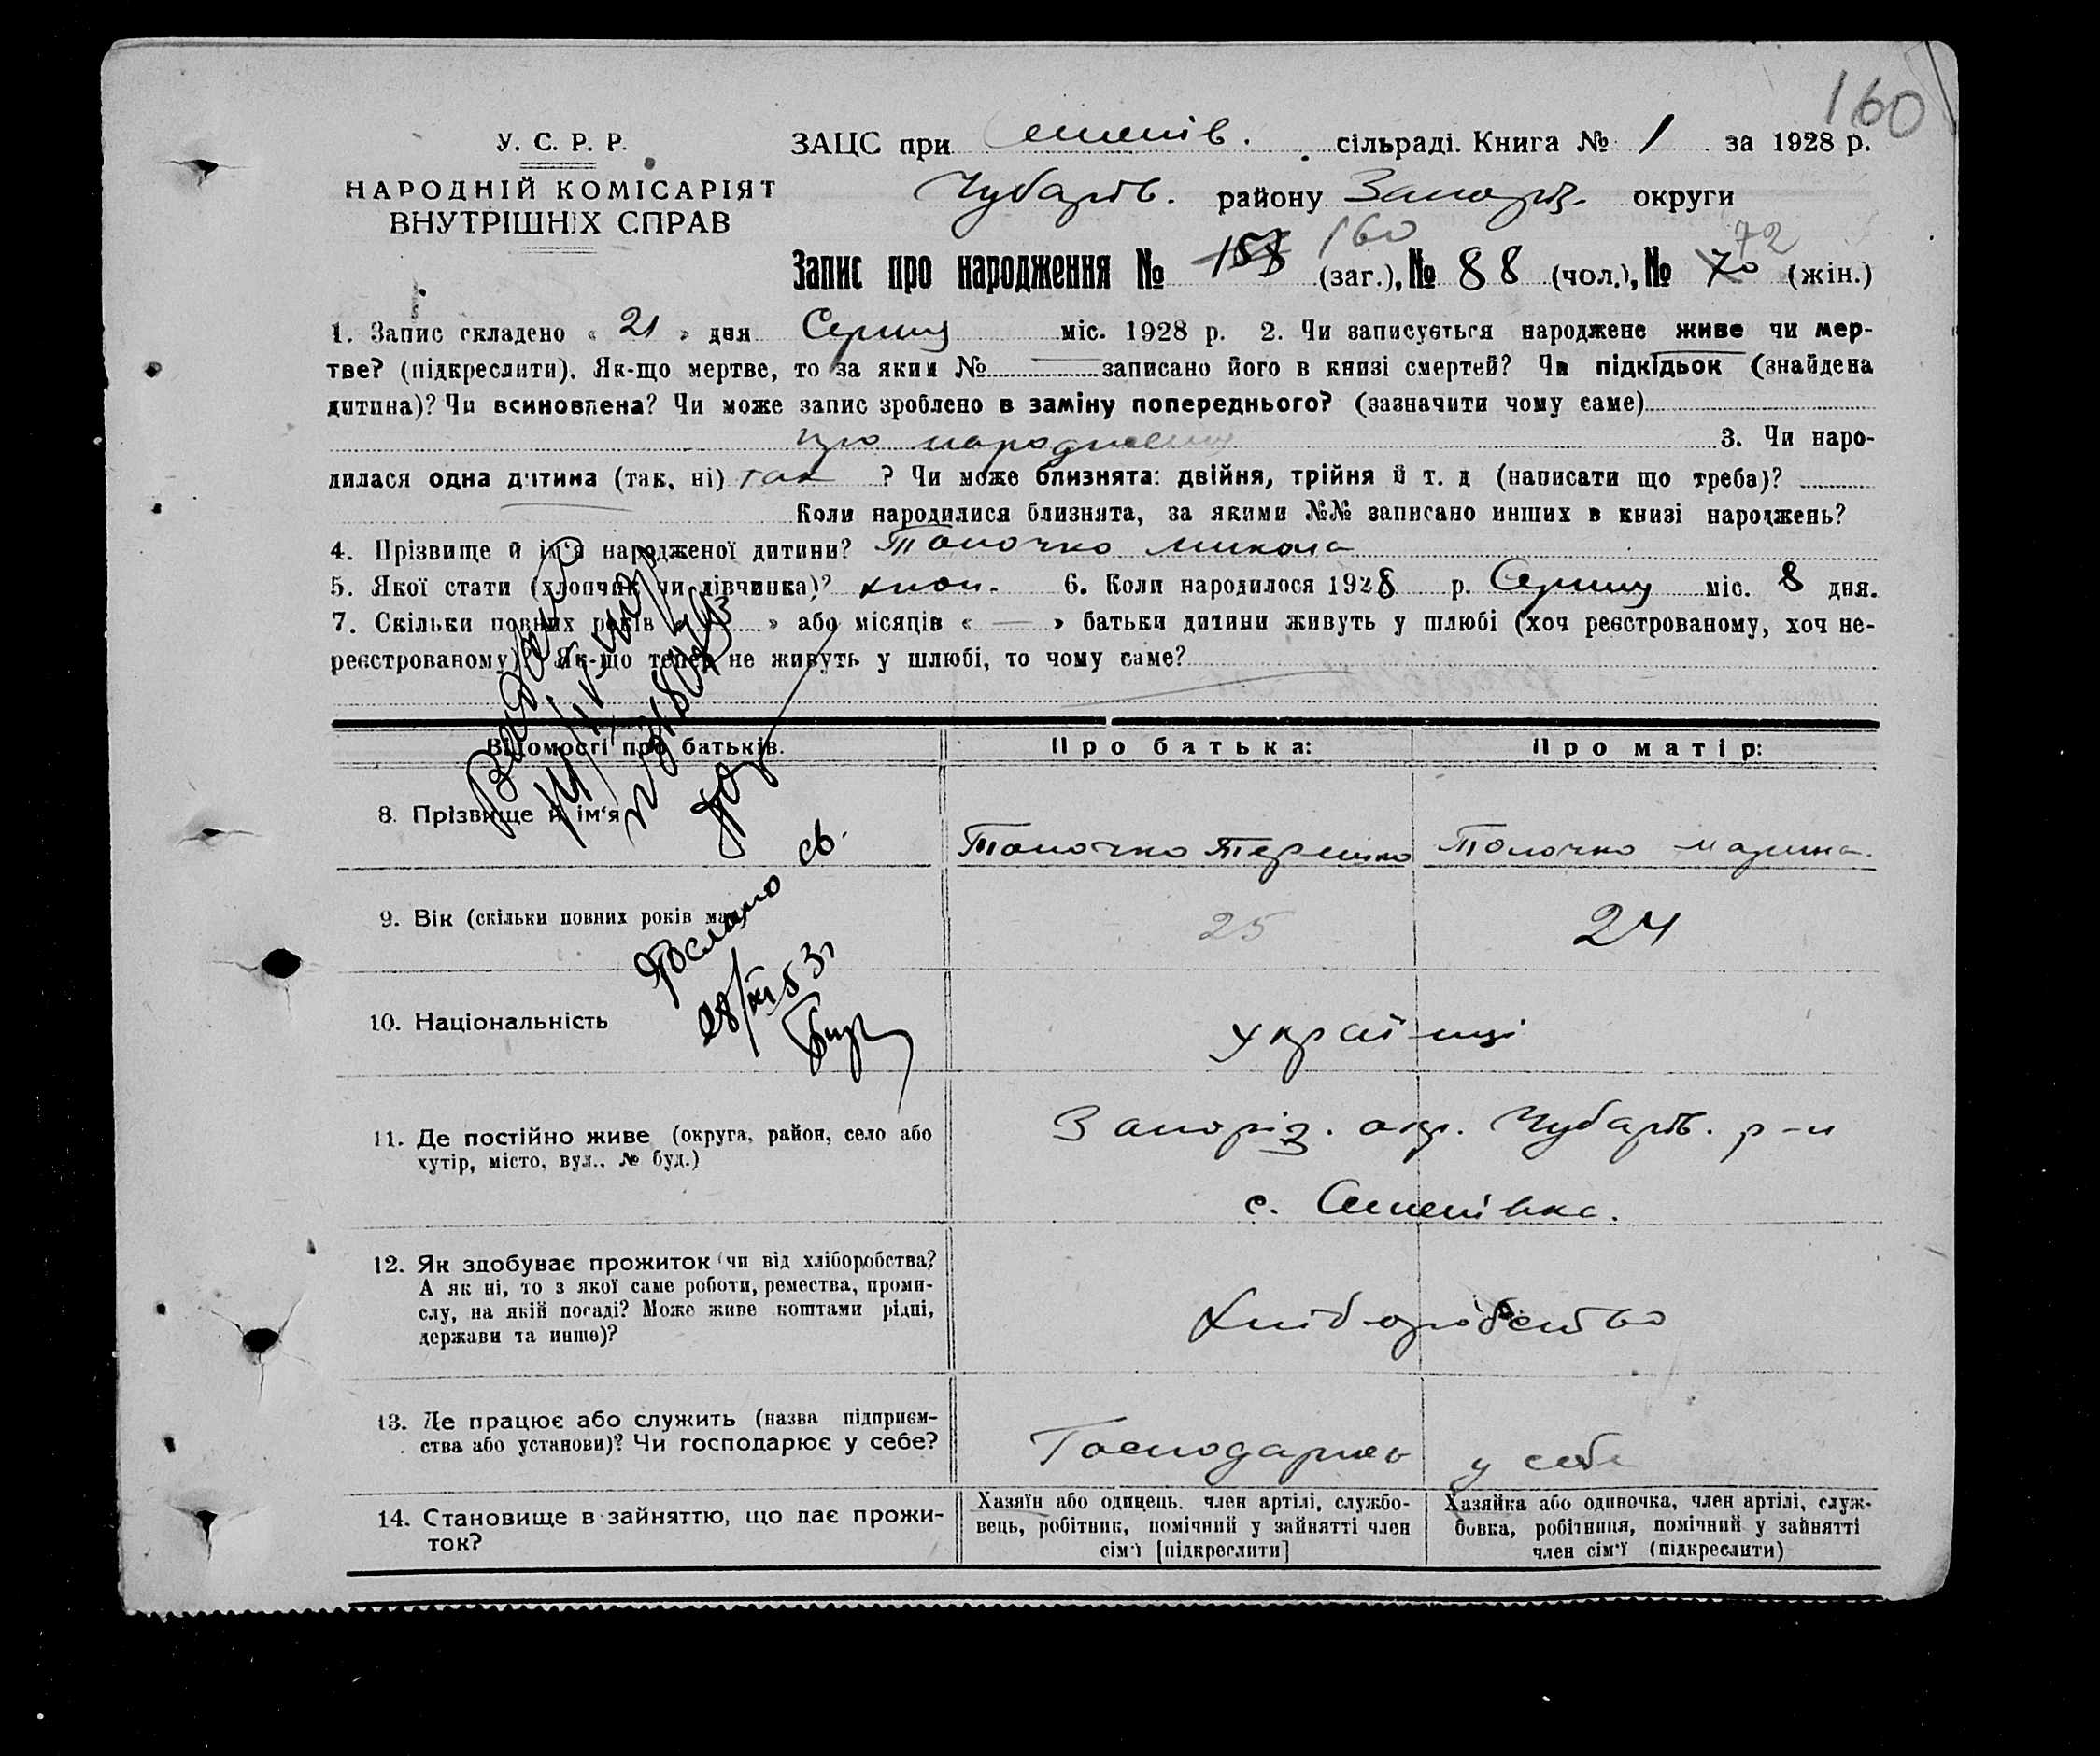 160
У. С. Р. Р.
НАРОДНІЙ КОМІСАРІЯТ
ВНУТРІШНІХ СПРАВ
ЗАЦС при Семенів. сільраді. Книга № 1 за 1928 р.
Чубарів. району Запоріз. округи
160 72
Запис про народження № 158 (заг.), № 88 (чол.), № 70 (жін.)
1. Запис складено « 21 » дня Серпня міс. 1928 р. 2. Чи записується народжене живе чи мер-
тве? (підкреслити). Як-що мертве, то за яким № — записано його в книзі смертей? Чи підкідьок (знайдена
дитина)? Чи всиновлена? Чи може запис зроблено в заміну попереднього? (зазначити чому саме)
про народження 3. Чи наро-
дилася одна дитина (так, ні) так ? Чи може близнята: двійня, трійня й т. д (написати що треба)?
Коли народилися близнята, за якими №№ записано инших в книзі народжень?
4. Прізвище й ім'я народженої дитини? Толочко Микола
5. Якої стати (хлопчик чи дівчинка)? хлоп. 6. Коли народилося 1928 р. Серпня міс. 8 дня.
7. Скільки повних років « » або місяців « — » батьки дитини живуть у шлюбі (хоч реєстрованому, хоч не-
реєстрованому)? Як-що тепер не живуть у шлюбі, то чому саме?
Відомості про батьків. Про батька: Про матір:
8. Прізвище й ім'я Толочко Терешко Толочко Марина.
9. Вік (скільки повних років має) 25 24
Послано св.
10. Національність Українці
11. Де постійно живе (округа, район, село або
хутір, місто, вул., № буд.)
Запоріз. окр. Чубарів. р-н
с. Семенівка.
12. Як здобуває прожиток (чи від хліборобства?
А як ні, то з якої саме роботи, ремества, проми-
слу, на якій посаді? Може живе коштами рідні,
держави та инше)?
Хліборобство
13. Де працює або служить (назва підприєм-
ства або установи)? Чи господарює у себе?
Господарює у себе
14. Становище в зайняттю, що дає прожи-
ток?
Хазяїн або одинець. член артілі, службо-
вець, робітник, помічний у зайнятті член
сім'ї [підкреслити]
Хазяйка або одиночка, член артілі, служ-
бовка, робітниця, помічний у зайнятті
член сім'ї (підкреслити)